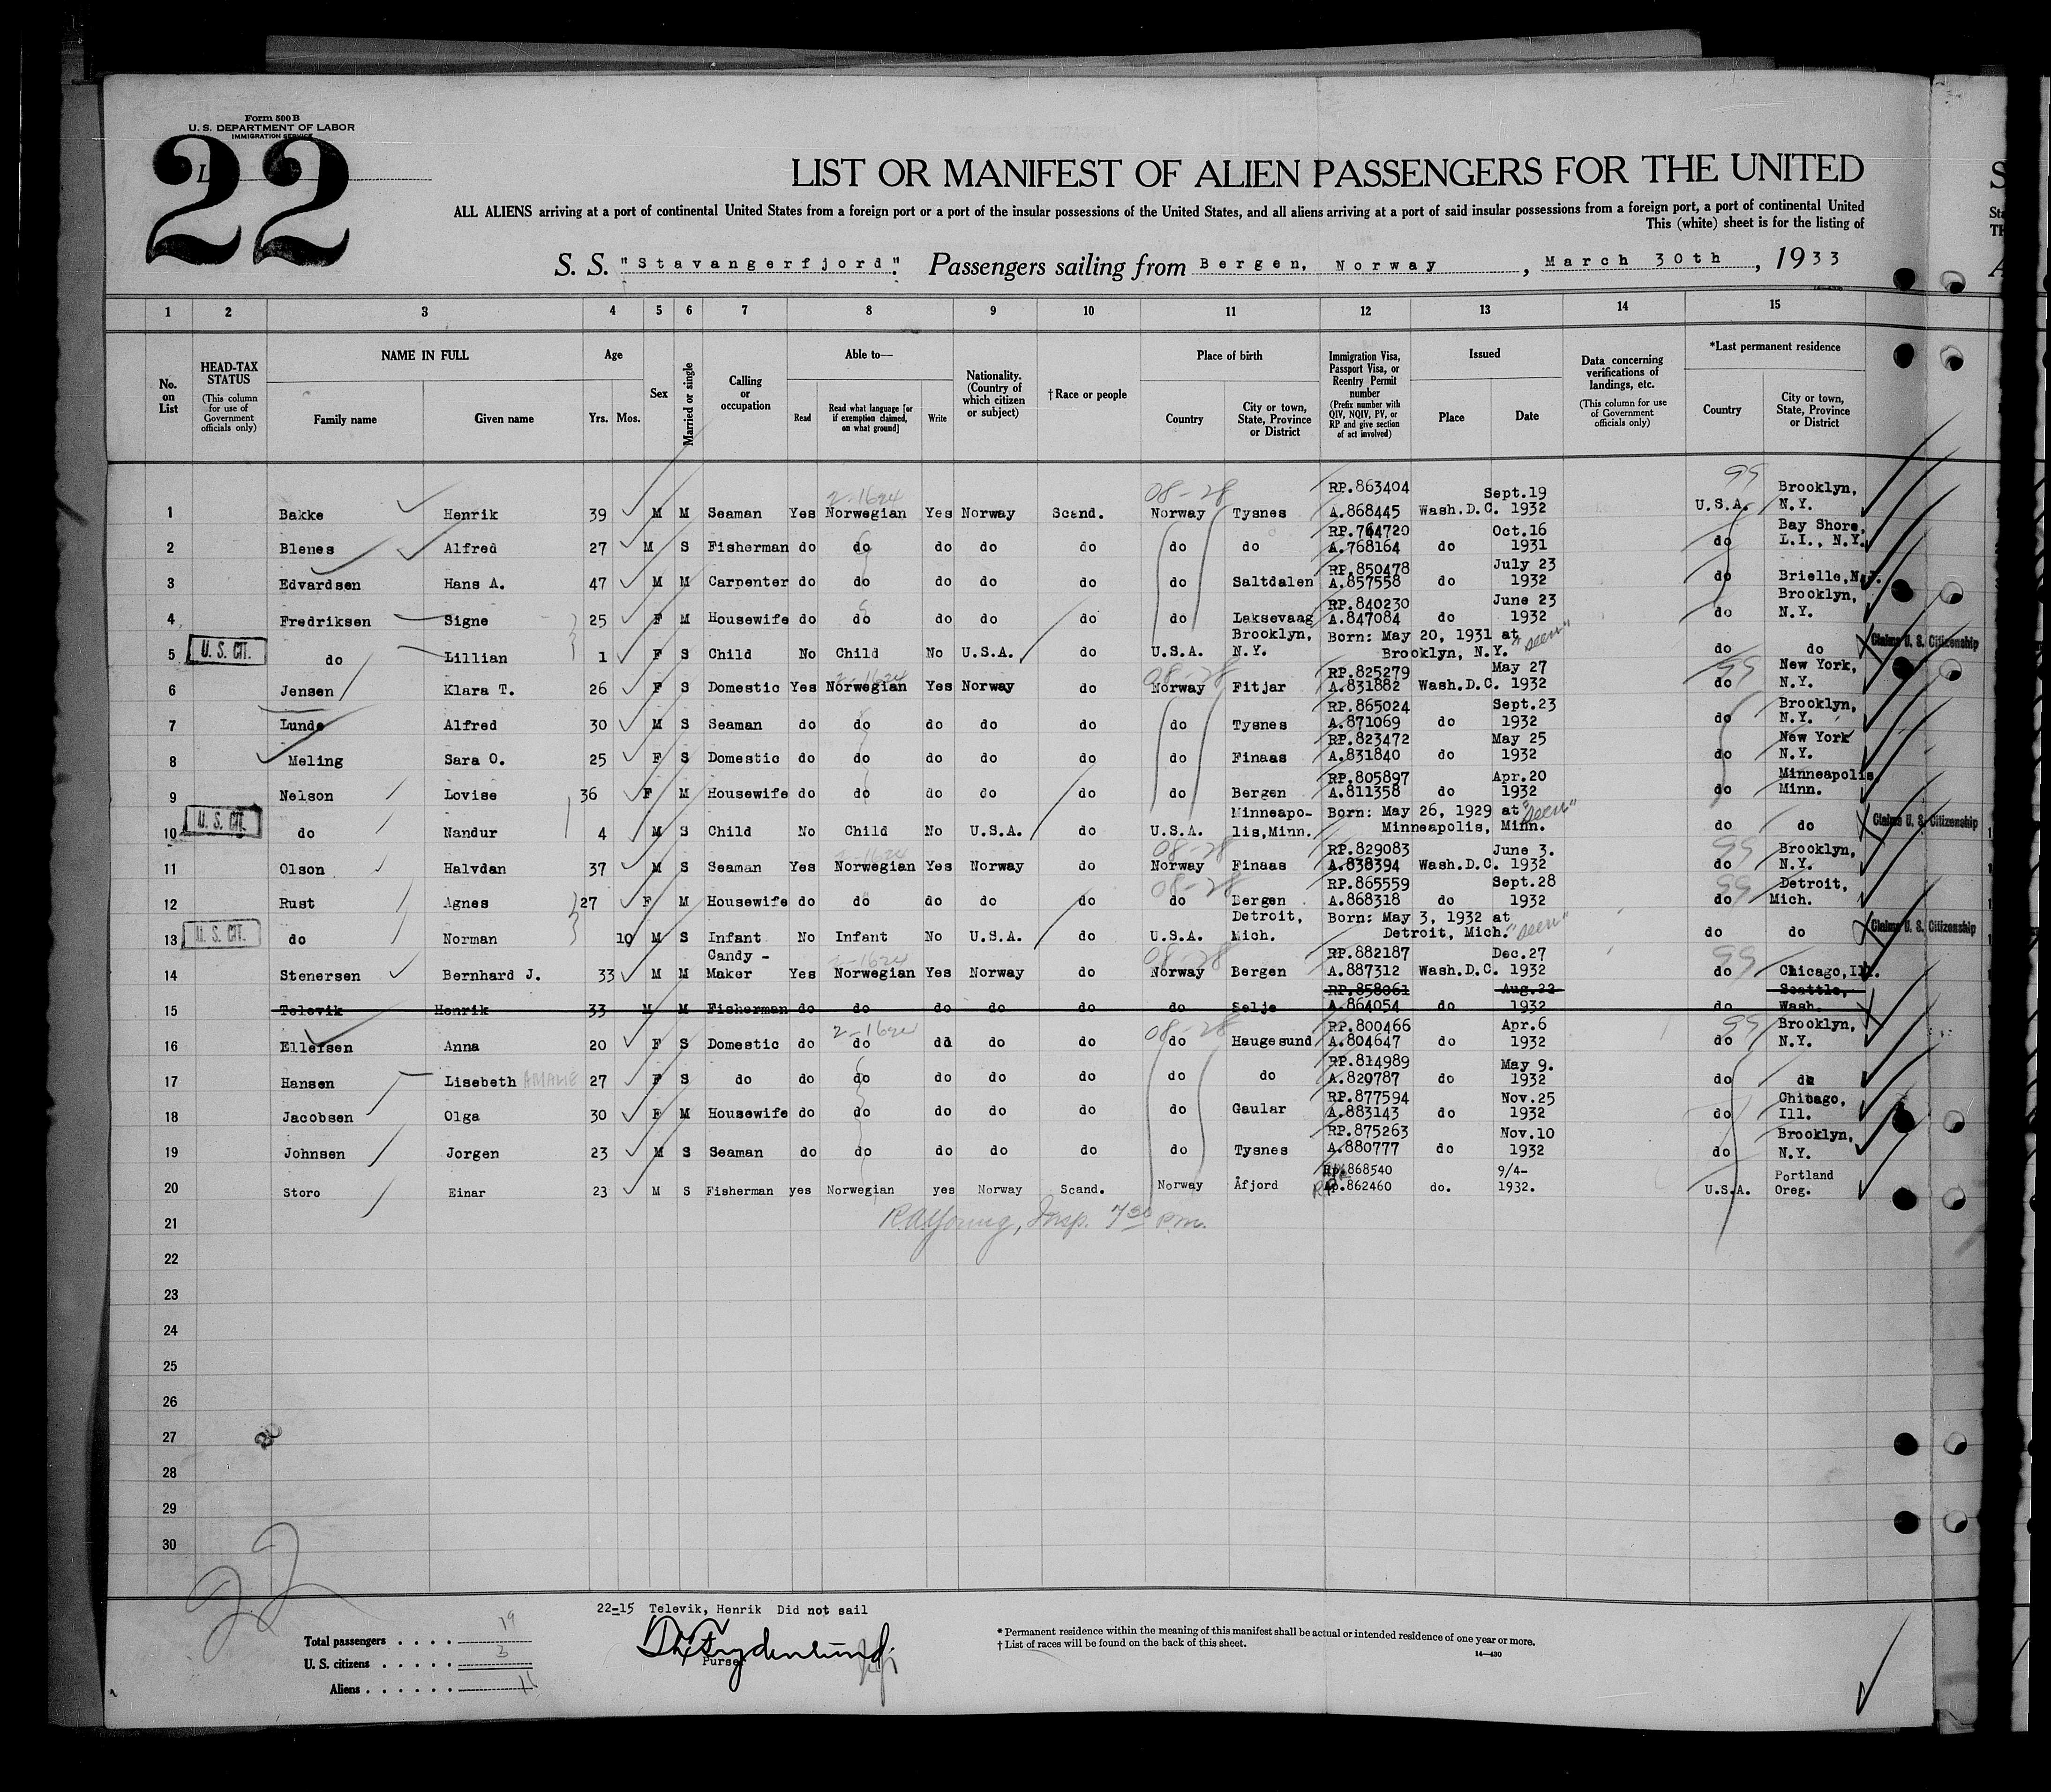 Form 500 B
U. S. DEPARTMENT OF LABOR
IMMIGRATION SERVICE
22
LIST OR MANIFEST OF ALIEN PASSENGERS FOR THE UNITED
ALL ALIENS arriving at a port of continental United States from a foreign port or a port of the insular possessions of the United States, and all aliens arriving at a port of said insular possessions from a foreign port, a port of continental United
This (white) sheet is for the listing of
S. S. "Stavangerfjord" Passengers sailing from Bergen, Norway, March 30th, 1933
1 2 3 4 5 6 7 8 9 10 11 12 13 14 15
No. on List
HEAD-TAX STATUS
(This column for use of Government officials only)
NAME IN FULL
Family name Given name
Age
Yrs. Mos.
Sex
Married or single
Calling or occupation
Able to—
Read
Read what language [or if exemption claimed, on what ground]
Write
Nationality. (Country of which citizen or subject)
†Race or people
Place of birth
Country
City or town, State, Province or District
Immigration Visa, Passport Visa, or Reentry Permit number
(Prefix number with QIV, NQIV, PV, or RP and give section of act involved)
Issued
Place Date
Data concerning verifications of landings, etc.
(This column for use of Government officials only)
*Last permanent residence
Country
City or town, State, Province or District
1 Bakke Henrik 39 M M Seaman Yes Norwegian Yes Norway Scand. Norway Tysnes RP.863404 A.868445 Wash.D.C. Sept.19 1932 U.S.A. Brooklyn, N.Y.
2 Blenes Alfred 27 M S Fisherman do do do do do do do RP.764720 A.768164 do Oct.16 1931 do Bay Shore, L.I., N.Y.
3 Edvardsen Hans A. 47 M M Carpenter do do do do do do Saltdalen RP.850478 A.857558 do July 23 1932 do Brielle, N.J.
4 Fredriksen Signe 25 F M Housewife do do do do do do Laksevaag RP.840230 A.847084 do June 23 1932 do Brooklyn, N.Y.
5 U. S. CIT. do Lillian 1 F S Child No Child No U.S.A. do U.S.A. Brooklyn, N.Y. Born: May 20, 1931 at Brooklyn, N.Y. "seen" do do Claims U. S. Citizenship
6 Jensen Klara T. 26 F S Domestic Yes Norwegian Yes Norway do Norway Fitjar RP.825279 A.831882 Wash.D.C. May 27 1932 do New York, N.Y.
7 Lunde Alfred 30 M S Seaman do do do do do do Tysnes RP.865024 A.871069 do Sept.23 1932 do Brooklyn, N.Y.
8 Meling Sara O. 25 F S Domestic do do do do do do Finaas RP.823472 A.831840 do May 25 1932 do New York N.Y.
9 Nelson Lovise 36 F M Housewife do do do do do do Bergen RP.805897 A.811358 do Apr.20 1932 do Minneapolis, Minn.
10 U. S. CIT. do Nandur 4 M S Child No Child No U.S.A. do U.S.A. Minneapo-lis,Minn. Born: May 26, 1929 at Minneapolis, Minn. "seen" do do Claims U. S. Citizenship
11 Olson Halvdan 37 M S Seaman Yes Norwegian Yes Norway do Norway Finaas RP.829083 A.838394 Wash.D.C. June 3. 1932 do Brooklyn, N.Y.
12 Rust Agnes 27 F M Housewife do do do do do do Bergen RP.865559 A.868318 do Sept.28 1932 do Detroit, Mich.
13 U. S. CIT. do Norman 10 M S Infant No Infant No U.S.A. do U.S.A. Detroit, Mich. Born: May 3, 1932 at Detroit, Mich. "seen" do do Claims U. S. Citizenship
14 Stenersen Bernhard J. 33 M M Candy - Maker Yes Norwegian Yes Norway do Norway Bergen RP.882187 A.887312 Wash.D.C. Dec.27 1932 do Chicago, Ill.
15 Televik Henrik 33 M M Fisherman do do do do do do Selje RP.858061 A.864054 do Aug.22 1932 do Seattle, Wash.
16 Ellefsen Anna 20 F S Domestic do do dd do do do Haugesund RP.800466 A.804647 do Apr.6 1932 do Brooklyn, N.Y.
17 Hansen Lisebeth AMALIE 27 F S do do do do do do do do RP.814989 A.820787 do May 9. 1932 do do
18 Jacobsen Olga 30 F M Housewife do do do do do do Gaular RP.877594 A.883143 do Nov.25 1932 do Chicago, Ill.
19 Johnsen Jorgen 23 M S Seaman do do do do do do Tysnes RP.875263 A.880777 do Nov.10 1932 do Brooklyn, N.Y.
20 Storo Einar 23 M S Fisherman yes Norwegian yes Norway Scand. Norway Åfjord RP.868540 RP.862460 do. 9/4-1932. U.S.A. Portland Oreg.
21 R.A.Young, Insp. 7 30 P.M.
22
23
24
25
26
27
28
29
30
22
22-15 Televik, Henrik Did not sail
Purser
Total passengers . . . . 19
U. S. citizens . . . . . 3
Aliens . . . . . . 16
* Permanent residence within the meaning of this manifest shall be actual or intended residence of one year or more.
† List of races will be found on the back of this sheet.
14—430